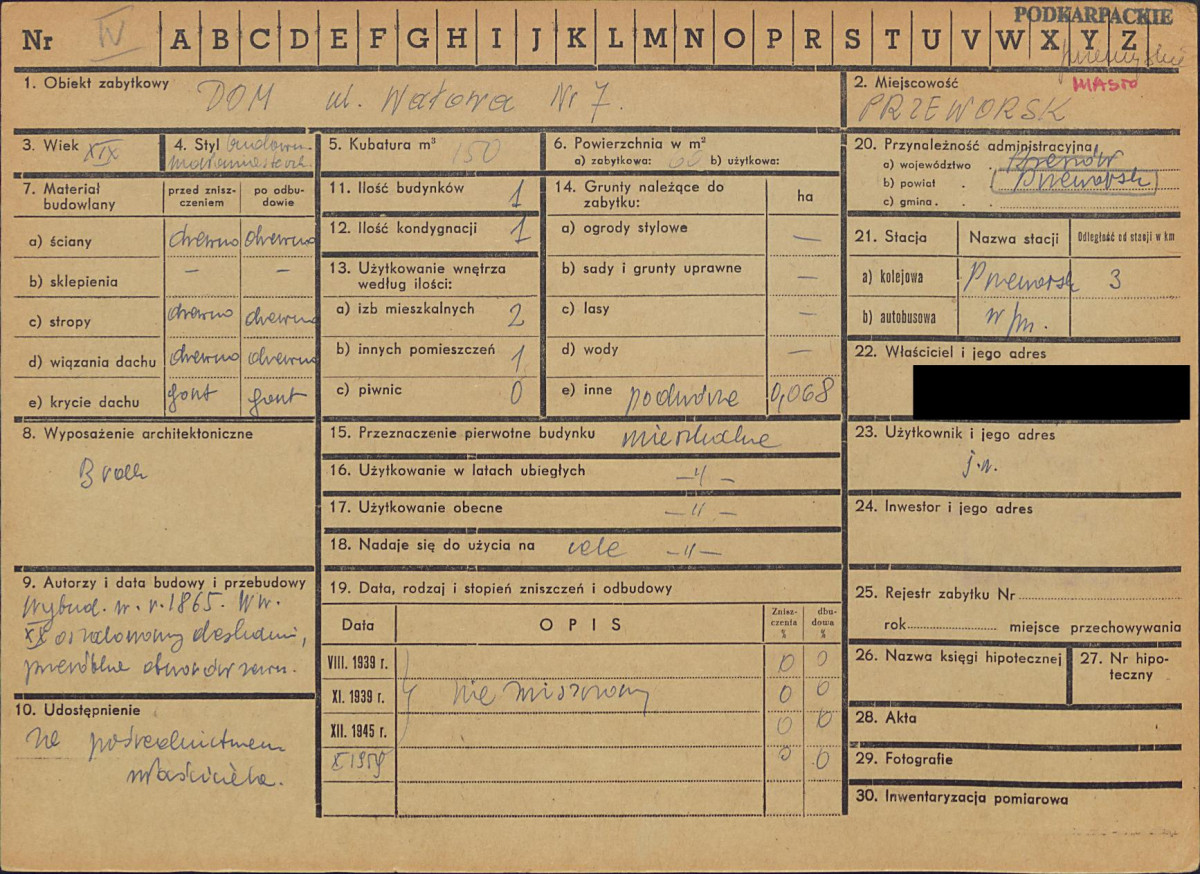 PODKARPACKIE
Nr IV A B C D E F G H I J K L M N O P R S T U V W X Y Z
1. Obiekt zabytkowy DOM ul. Wałowa Nr 7.
2. Miejscowość MIASTO
PRZEWORSK
3. Wiek XIX
4. Styl budown. małomiasteczk.
5. Kubatura m³ 150
6. Powierzchnia w m²
a) zabytkowa: 60 b) użytkowa:
7. Materiał budowlany
przed zniszczeniem
po odbudowie
a) ściany drewno drewno
b) sklepienia – –
c) stropy drewno drewno
d) wiązania dachu drewno drewno
e) krycie dachu gont gont
8. Wyposażenie architektoniczne
Brak
9. Autorzy i data budowy i przebudowy
Wybud. w r. 1865. W w.
XX oszalowany deskami,
przeróbka otworów
10. Udostępnienie
za pośrednictwem
właściciela.
11. Ilość budynków 1
12. Ilość kondygnacji 1
13. Użytkowanie wnętrza
według ilości:
a) izb mieszkalnych 2
b) innych pomieszczeń 1
c) piwnic 0
14. Grunty należące do
zabytku: ha
a) ogrody stylowe —
b) sady i grunty uprawne —
c) lasy —
d) wody —
e) inne podwórze 0,068
15. Przeznaczenie pierwotne budynku mieszkalne
16. Użytkowanie w latach ubiegłych —„—
17. Użytkowanie obecne —„—
18. Nadaje się do użycia na cele —„—
19. Data, rodzaj i stopień zniszczeń i odbudowy
Data OPIS Zniszczenia % dbudowa %
VIII. 1939 r. 0 0
XI. 1939 r. nie niszczony 0 0
XII. 1945 r. 0 0
X 1959 0 0
20. Przynależność administracyjna
a) województwo Rzeszów
b) powiat Przeworsk
c) gmina
21. Stacja Nazwa stacji Odległość od stacji w km
a) kolejowa Przeworsk 3
b) autobusowa w/m.
22. Właściciel i jego adres
23. Użytkownik i jego adres
j.w.
24. Inwestor i jego adres
25. Rejestr zabytku Nr
rok miejsce przechowywania
26. Nazwa księgi hipotecznej
27. Nr hipoteczny
28. Akta
29. Fotografie
30. Inwentaryzacja pomiarowa